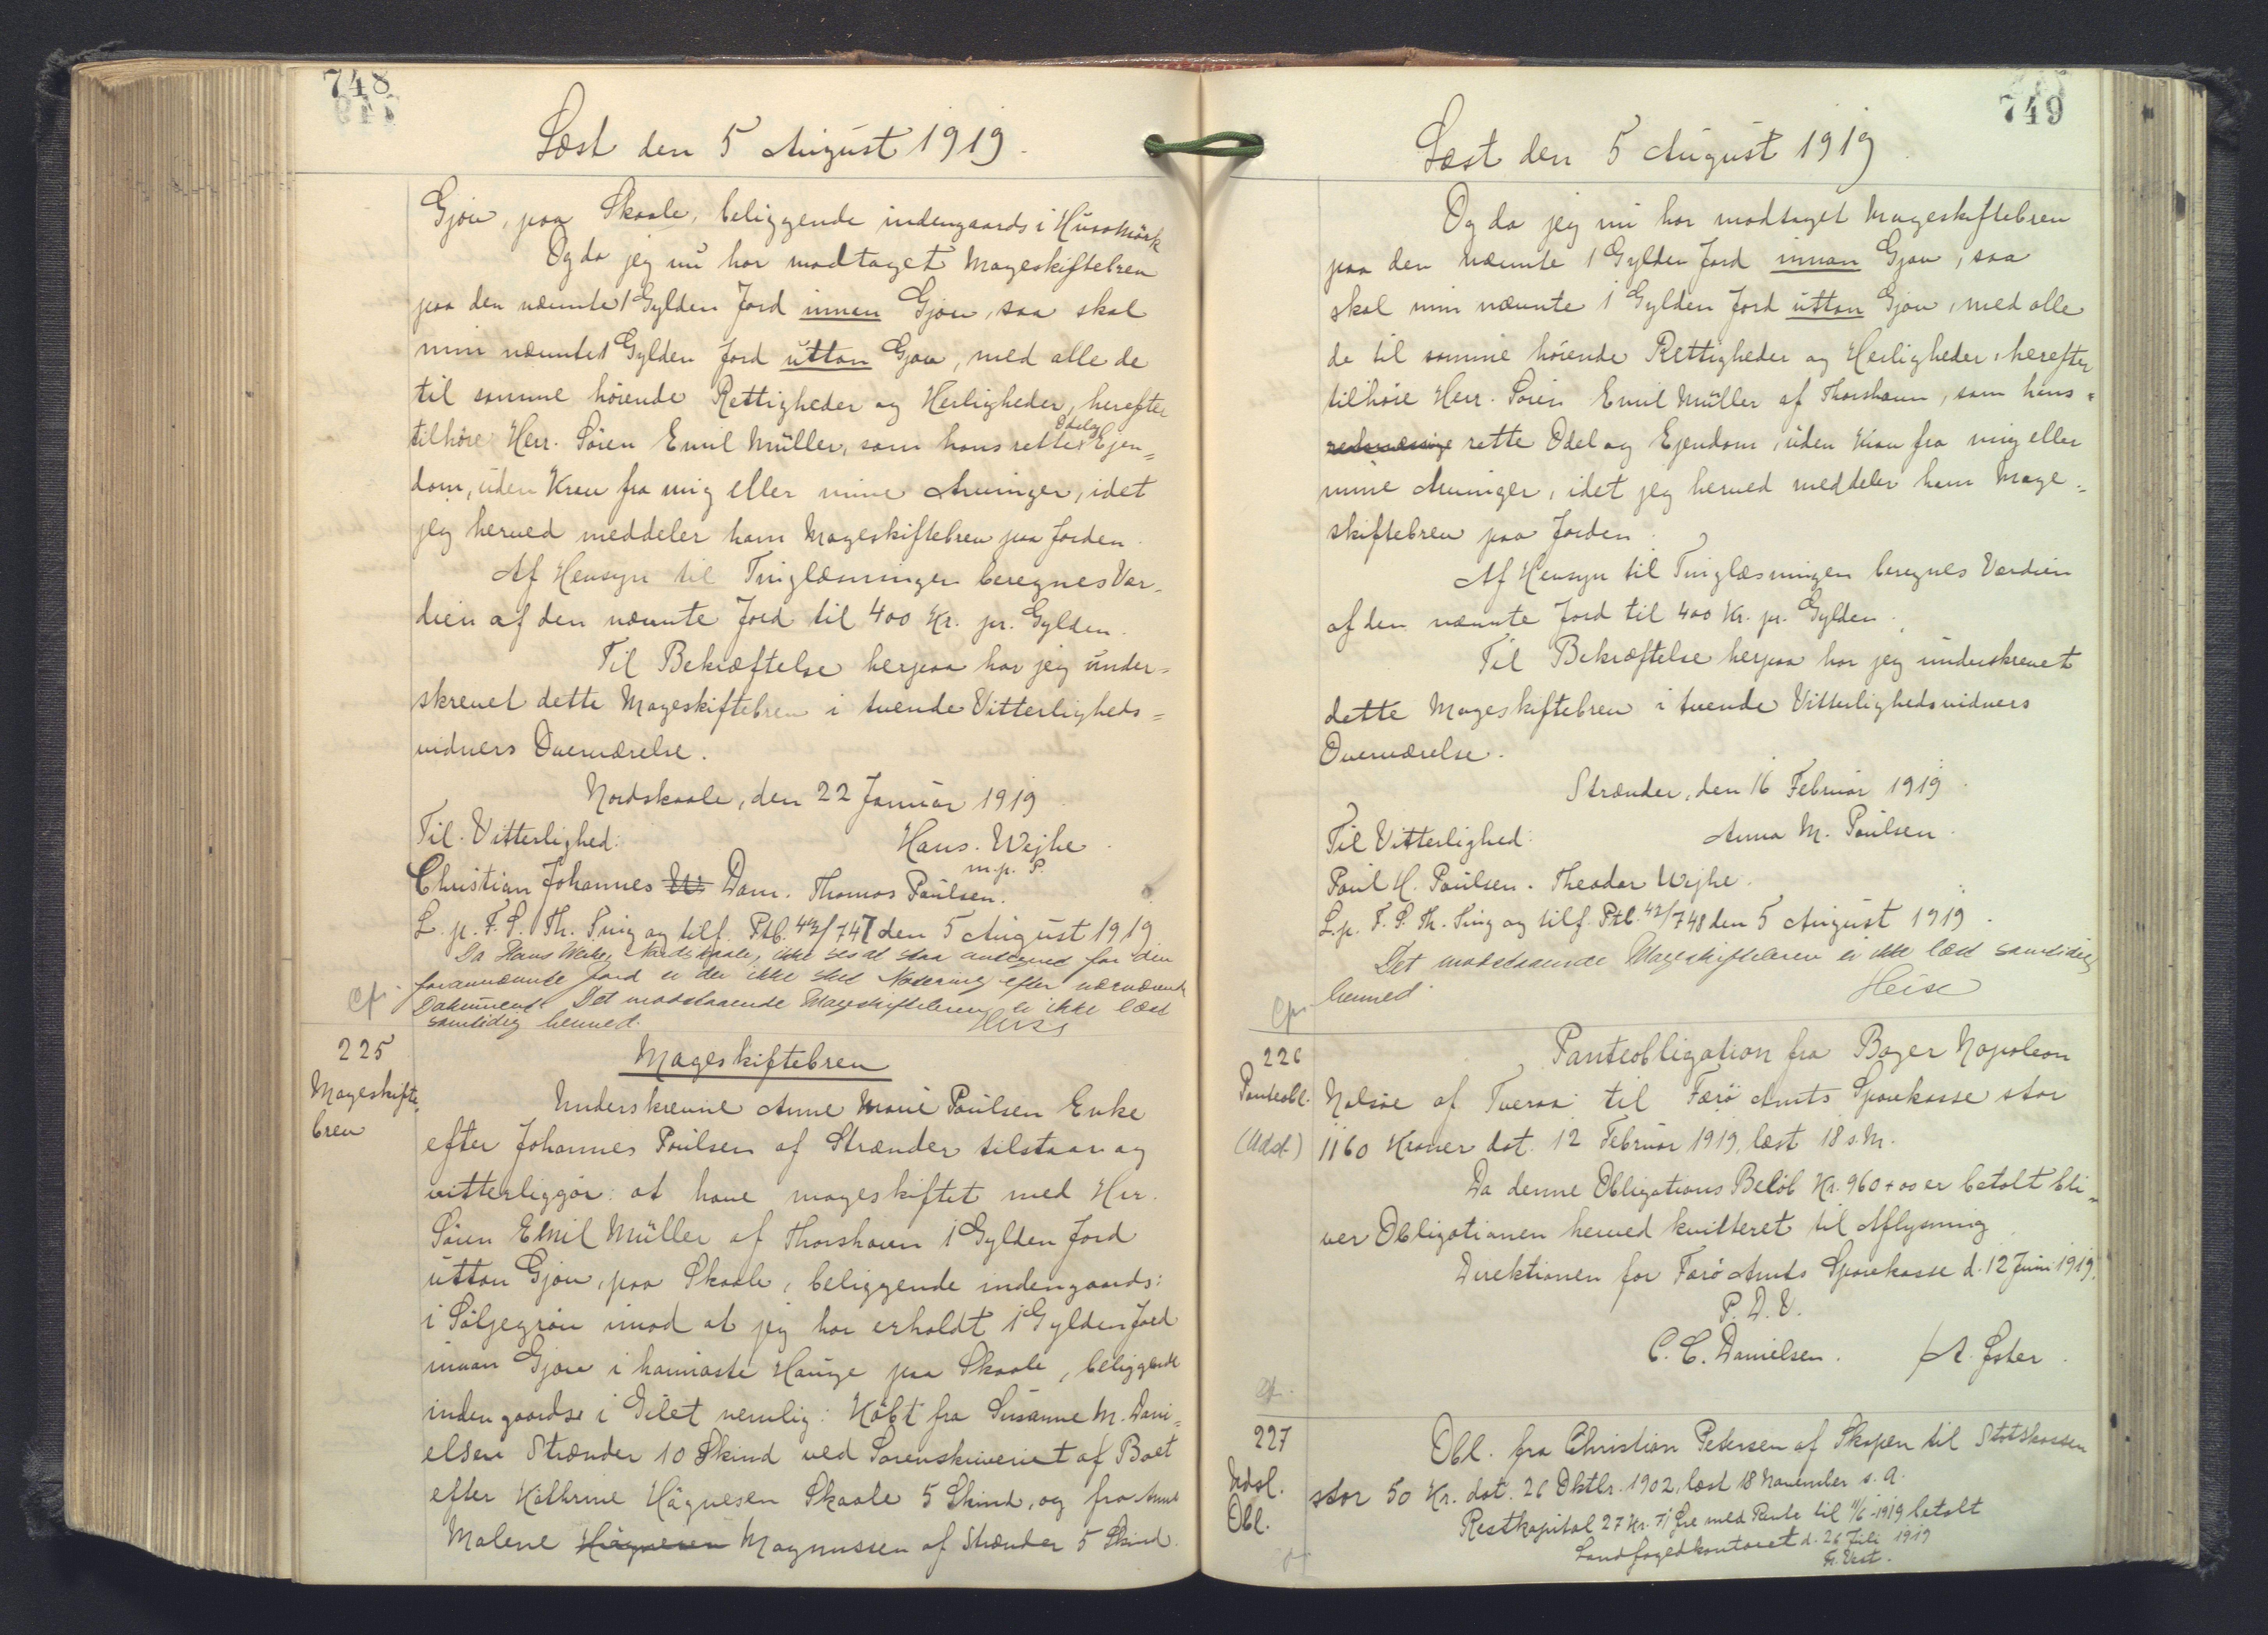 748
Læst den 5 August 1919.
Gjov, paa Skaale, beliggende indengaards i Husamörk
Og da jeg nu har modtaget Mageskiftebrev
paa den nævnte 1 Gylden Jord innan Gjov, saa skal
min nævnte 1 Gylden Jord uttan Gjov, med alle de
til samme höiende Rettigheder og Herligheder, herefter
tilhöre Herr. Sören Emil Müller, som hans rette Odel og Ejen=
dom, uden Krav fra mig eller mine Arvinger, idet
jeg herved meddeler ham Mageskiftebrev paa Jorden.
Af Hensyn til Tinglæsningen beregnes Vær-
dien af den nævnte Jord til 400 Kr. pr. Gylden.
Til Bekræftelse herpaa har jeg under=
skrevet dette Mageskiftebrev i tvende Vitterligheds=
vidners Overværelse.
Nordskaale, den 22 Januar 1919.
Til Vitterlighed: Hans Wejhe.
m.p. P.
Christian Johannes Dam. Thomas Paulsen.
L. p. F. S. Th. Ting og tilf. Ptb. 42/747 den 5 August 1919
Da Hans Weihe, Nordskaale, ikke ses at staa antegnet for den
forannævnte Jord er der ikke sket Notering efter nærværende
Dokument. Det modstaaende Mageskiftebrev er ikke læst
samtidig hermed. Heise
cf.
225
Mageskifte,
brev
Mageskiftebrev
Underskrevne Anne Marie Poulsen Enke
efter Johannes Poulsen af Strænder tilstaar og
vitterliggör: at have mageskiftet med Herr.
Sören Emil Müller af Thorshavn 1 Gylden Jord
uttan Gjov, paa Skaale, beliggende indengaards:
i Söljegröv imod at jeg har erholdt 1 Gylden Jord
innan Gjov i hannaste Hauge paa Skaale, beliggende
indengaards i Gilet nemlig: Köbt fra Susanne M. Dani=
elsen Strænder 10 Skind ved Sorenskriveriet af Boet
efter Kathrine Högnesen Skaale 5 Skind, og fra Anne
Malene Högnesen Magnussen af Strænder 5 Skind.
749
Læst den 5 August 1919.
Og da jeg nu har modtaget Mageskiftebrev
paa den nævnte 1 Gylden Jord innan Gjov, saa
skal min nævnte 1 Gylden Jord uttan Gjov, med alle
de til samme höiende Rettigheder og Herligheder, herefter
tilhöre Herr. Sören Emil Müller af Thorshavn, som hans =
retmæssige rette Odel og Ejendom, uden Krav fra mig eller
mine Arvinger, idet jeg herved meddeler ham Mage=
skiftebrev paa Jorden.
Af Hensyn til Tinglæsningen beregnes Værdien
af den nævnte Jord til 400 Kr. pr. Gylden.
Til Bekræftelse herpaa har jeg underskrevet
dette Mageskiftebrev i tvende Vitterlighedsvidners
Overværelse.
Strænder, den 16 Februar 1919.
Til Vitterlighed: Anna M. Poulsen.
Poul H. Poulsen. Theodor Wejhe.
L. p. F. S. Th. Ting og tilf. Ptb. 42/748 den 5 August 1919.
Det modstaaende Mageskiftebrev er ikke læst samtidig
hermed. Heise
226
Panteobl.
(Udsl.)
Panteobligation fra Bager Napoleon
Nolsöe af Tveraa til Færö Amts Sparekasse stor
1160 Kroner dat. 12 Februar 1919, læst 18 s. M.
Da denne Obligations Belöb Kr. 960 + oo er betalt bli=
ver Obligationen herved kvitteret til Aflysning
Direktionen for Færö Amts Sparekasse d. 12 Juni 1919.
P. D. V.
C. C. Danielsen.
cf.
227
Udsl.
Obl.
Obl. fra Christian Petersen af Skopen til Statskassen
stor 50 Kr. dat. 26 Oktbr. 1902, læst 18 November s. A.
Restkapital 27 Kr. 71 Öre med Rente til 11/6-1919 betalt
Landfogedkontoret d. 26 Juli 1919